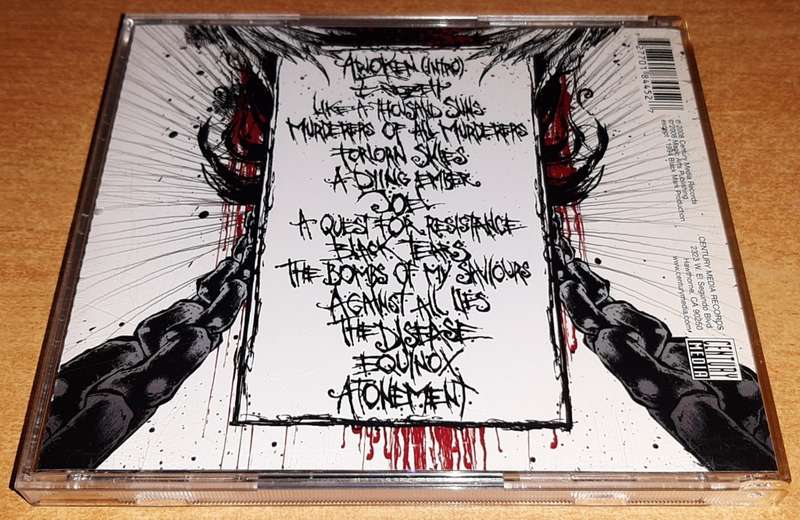 AWOKEN (INTRO)
ENDZEIT
LIKE A THOUSAND SUNS
MURDERERS OF ALL MURDERERS
FORLORN SKIES
A DYING EMBER
JOEL
A QUEST FOR RESISTANCE
BLACK TEARS
THE BOMBS OF MY SAVIOURS
AGAINST ALL LIES
THE DISEASE
EQUINOX
ATONEMENT
84452 7
℗ 2008 Century Media Records
© 2008 Magic Arts Publishing
1994 Black Mark Production
CENTURY MEDIA RECORDS
2323 W. El Segundo Blvd
Hawthorne, CA 90250
www.centurymedia.com
CENTURY
MEDIA